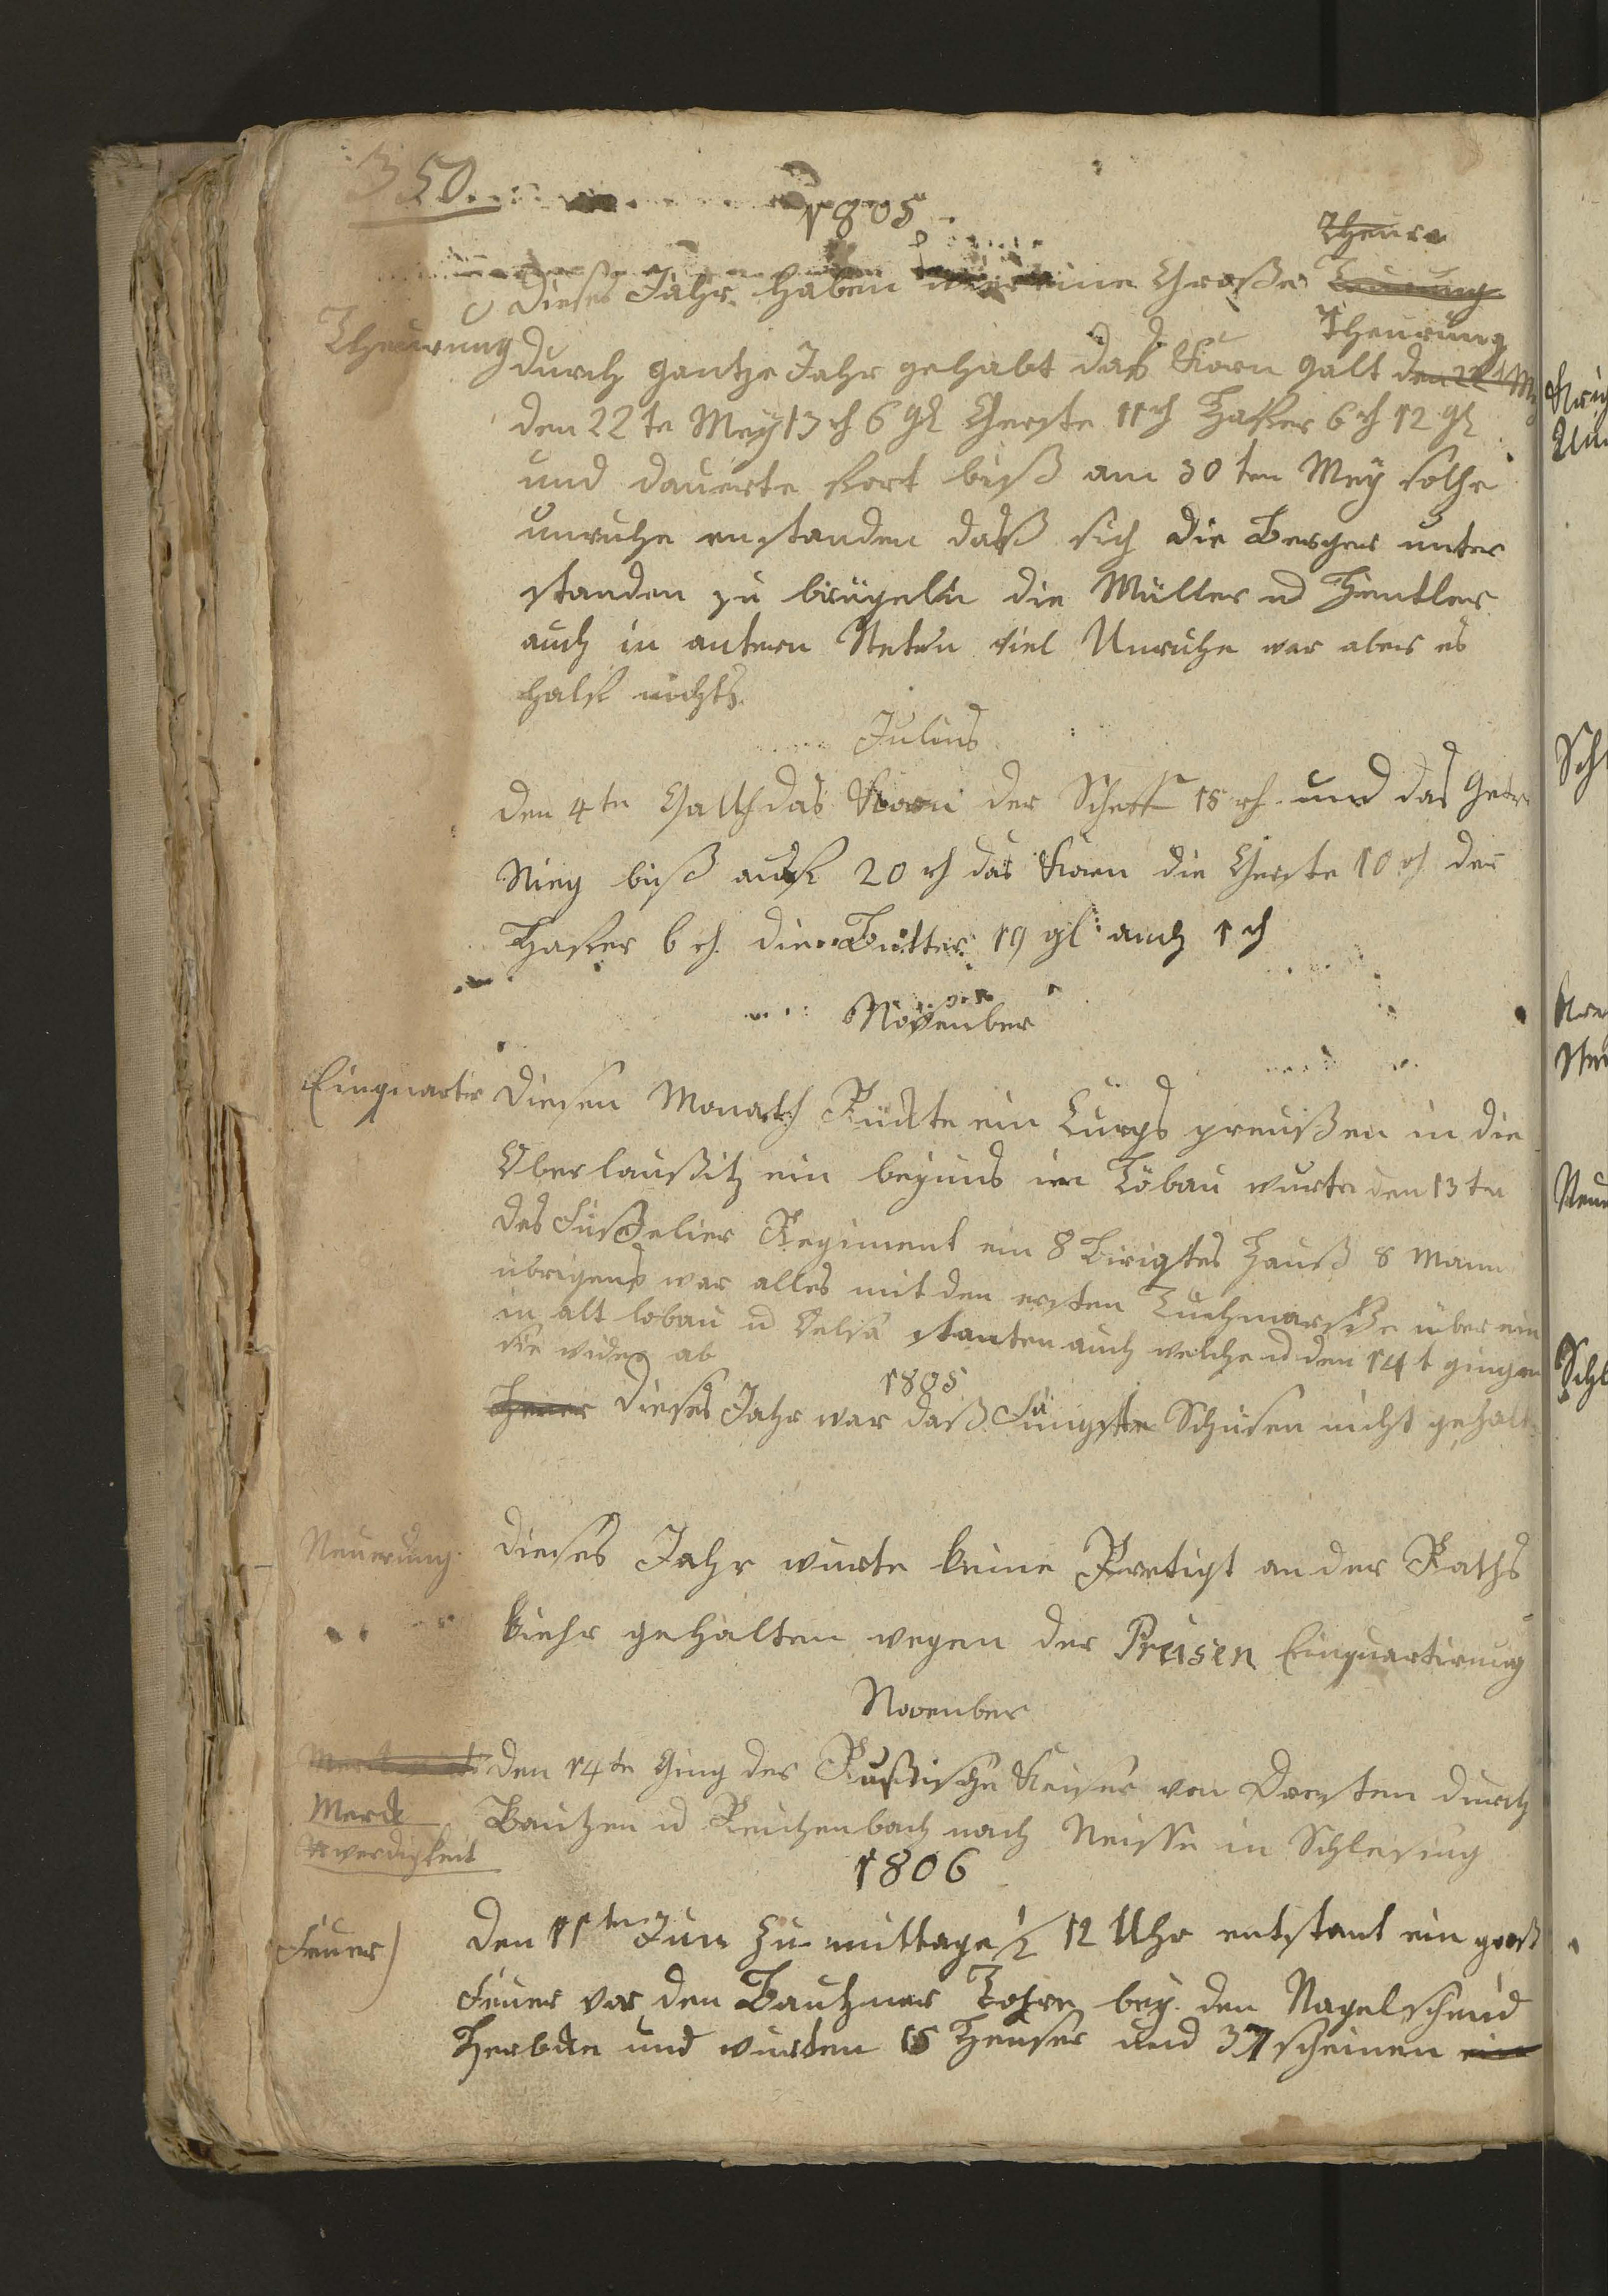 350.
1805
Theure
Dieses Jahr haben wir eine Große Teurung
Theurung
Theurung
durch gantze Jahr gehabt das Korn galt den 22 t M
den 22 te Mey 13 rh 6 gl Gerste 11 rh Hafer 6 rh 12 gl
und dauerte fort biß am 30 ten Mey solche
unruhe enstanden daß sich die Berger unter
standen zu brügeln die Müller u Hentler
auch in antern Steten viel Unruhe war aber es
half nichts.
Julius
den 4 te Galth das Korn der Scheff 15 rh und das Getr
Stieg biß auf 20 rh das Korn die Gerste 10 rh der
Hafer 6 rh die Butter 19 gl auch 1 rh
November
Einquartir
Diesen Monath Rückte ein Curps preußen in die
Oberlaußitz ein bey uns in Löbau wurte den 13 te
das Füßelier Regiment ein 8 Birigtes Hauß 8 Mann
übrigens war alles mit den ersten Durchmarsche über ein
in alt löbau u Oelsa stanten auch welche u den 14 t gingen
sie wider ab
1805
Dieses Jahr war daß Füngste Schüsen nicht gehalt
Neuerung
Dieses Jahr wurte keine Pretigt an der Raths
kiehr gehalten wegen der Preisen Einquartirung
November
den 14 te Ging der Rußische Keiser von Dresten durch
Merck
Bautzen u Reichenbach nach Neisse in Schlesing
werdigkeit
1806
Feuer
Den 11 ten Jun Zu mittage 1/2 12 Uhr entstant ein groß
Feuer vor den Bautzner Tohre bey den Nagelschmid
und wurten 15 Heuser und 37 scheinen ein